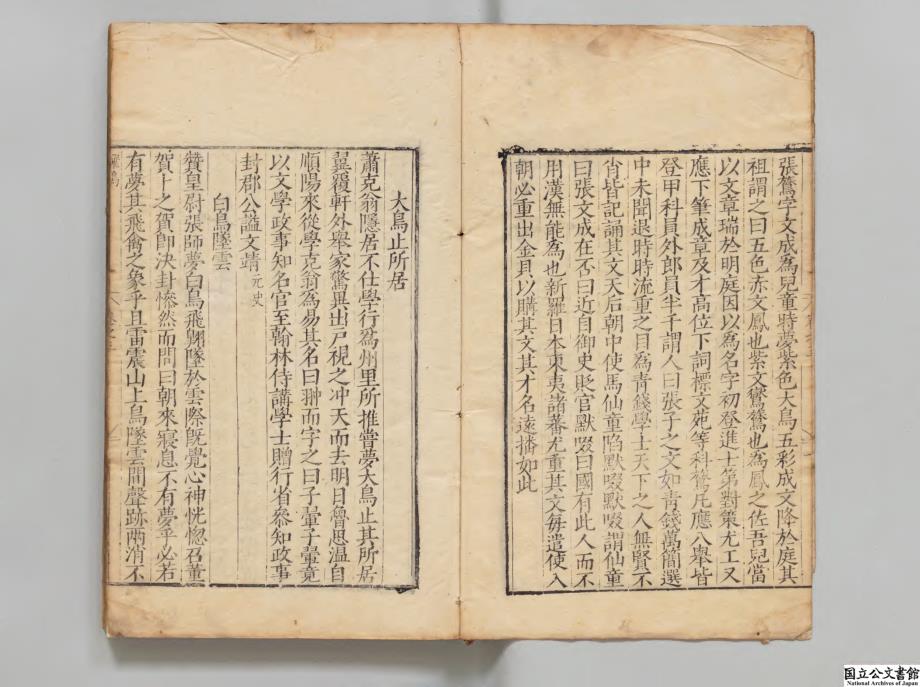 張鷟字文成為兒童時夢紫色大鳥五彩成文降於庭其
祖謂之曰五色赤文鳳也紫文鸑鷟也為鳳之佐吾兒當
以文章瑞於明庭因以為名字初登進士第對策尤工又
應下筆成章及才高位下詞標文苑等科鷟凡應八舉皆
登甲科員外郎員半千謂人曰張子之文如青錢萬簡選
中未聞退時時流重之目為青錢學士天下之人無賢不
肖皆記誦其文天后朝中使馬仙童陷默啜默啜謂仙童
曰張文成在否曰近自御史貶官默啜曰國有此人而不
用漢無能為也新羅日本東夷諸蕃尤重其文每遣使入
朝必重出金貝以購其文其才名遠播如此
大鳥止所居
蕭克翁隱居不仕學行為州里所推嘗夢大鳥止其所居
翼覆軒外舉家驚異出戸視之冲天而去明日魯思温自
順陽來從學克翁為易其名曰翀而字之曰子翬子翬竟
以文學政事知名官至翰林侍講學士贈行省參知政事
封郡公謚文靖 元史
白鳥墜雲
贊皇尉張師夢白鳥飛翱墜於雲際既覺心神恍惚召董
賀卜之賀即決封慘然而問曰朝來寢息不有夢乎必若
有夢其飛禽之象乎且雷震山上鳥墜雲間聲跡兩消不
国立公文書館
National Archives of Japan